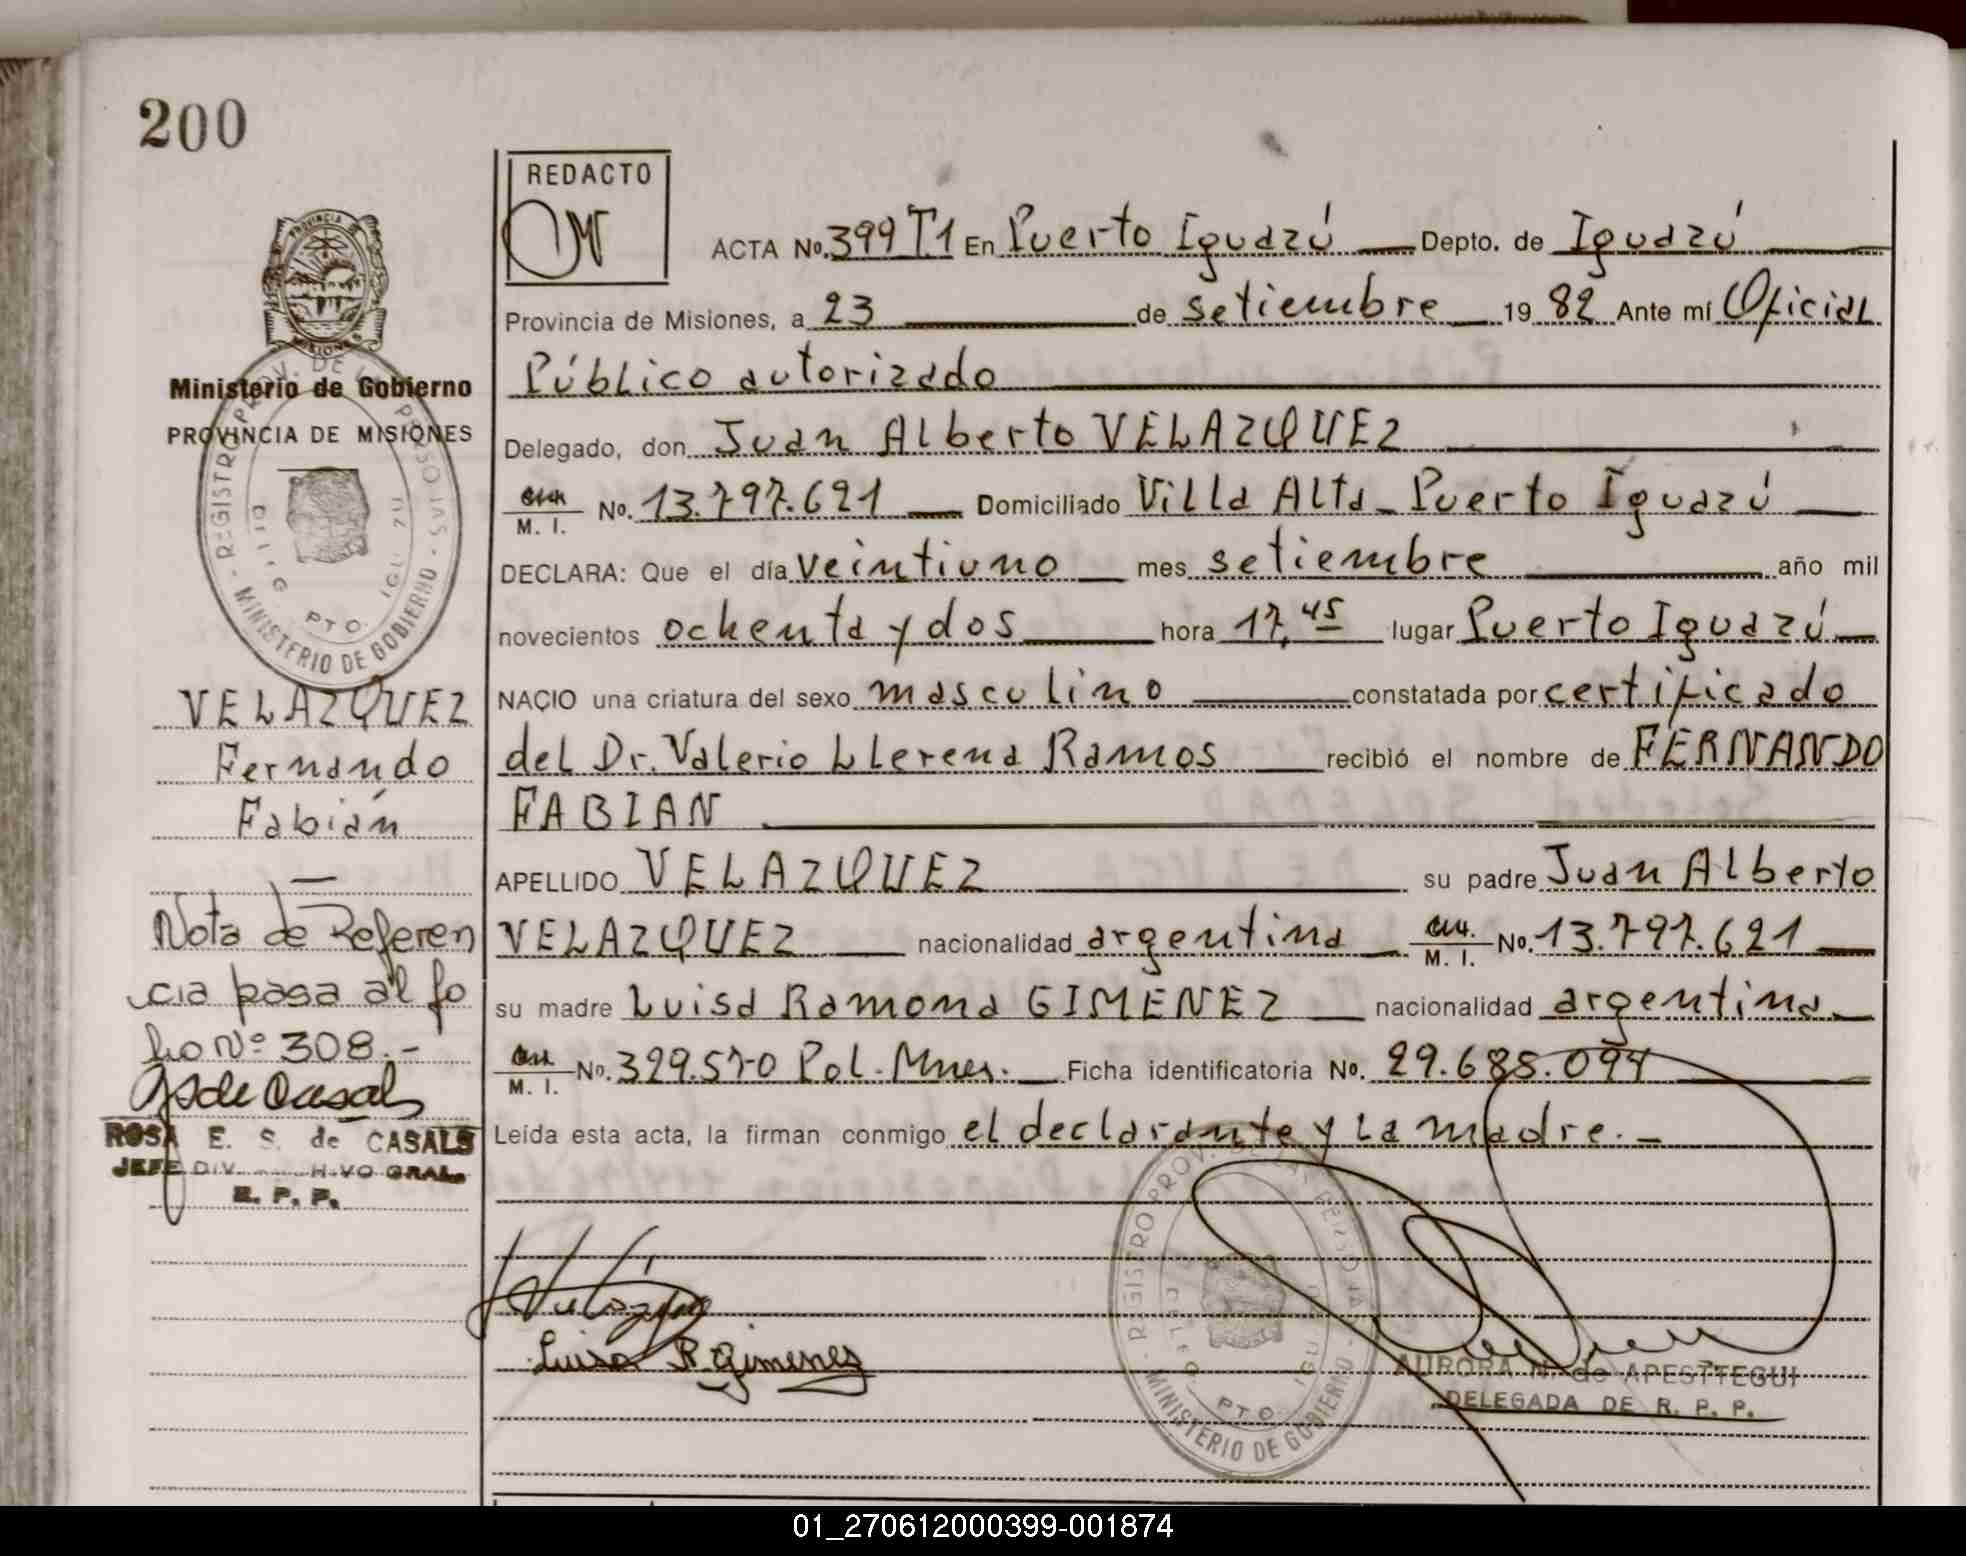 200
REDACTO
ACTA No. 399 T.1 En Puerto Iguazú Depto. de Iguazú
Provincia de Misiones, a 23 de setiembre 19 82 Ante mí Oficial
Público autorizado
Delegado, don Juan Alberto VELAZQUEZ
M. I. No. 13.797.621 Domiciliado Villa Alta - Puerto Iguazú
DECLARA: Que el día veintiuno mes setiembre año mil
novecientos ochenta y dos hora 17,45 lugar Puerto Iguazú
NACIO una criatura del sexo masculino constatada por certificado
del Dr. Valerio Llerena Ramos recibió el nombre de FERNANDO
FABIAN
APELLIDO VELAZQUEZ su padre Juan Alberto
VELAZQUEZ nacionalidad argentina M. I. No. 13.797.621
su madre Luisa Ramona GIMENEZ nacionalidad argentina
M. I. No. 329.570 Pol. Mnes. Ficha identificatoria No. 29.685.094
Leída esta acta, la firman conmigo el declarante y la madre.-
Luisa R. Gimenez
AURORA N. de APESTTEGUI
DELEGADA DE R. P. P.
PROVINCIA
MISIONES
Ministerio de Gobierno
PROVINCIA DE MISIONES
REGISTRO PROV. DE
MINISTERIO DE GOBIERNO
PTO.
VELAZQUEZ
Fernando
Fabián
Nota de Referen
cia pasa al fo
lio Nº 308.-
ROSA E. S. de CASALS
JEFE DIV. GRAL.
R. P. P.
REGISTRO PROV.
MINISTERIO DE GOBIERNO
PTO.
01_270612000399-001874